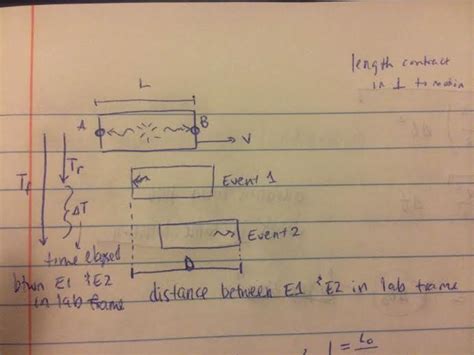 length contract
in ⊥ to motion
L
A
B
V
Tr
Tf
ΔT
Event 1
Event 2
time elapsed
btwn E1 & E2
in lab frame
D
distance between E1 & E2 in lab frame